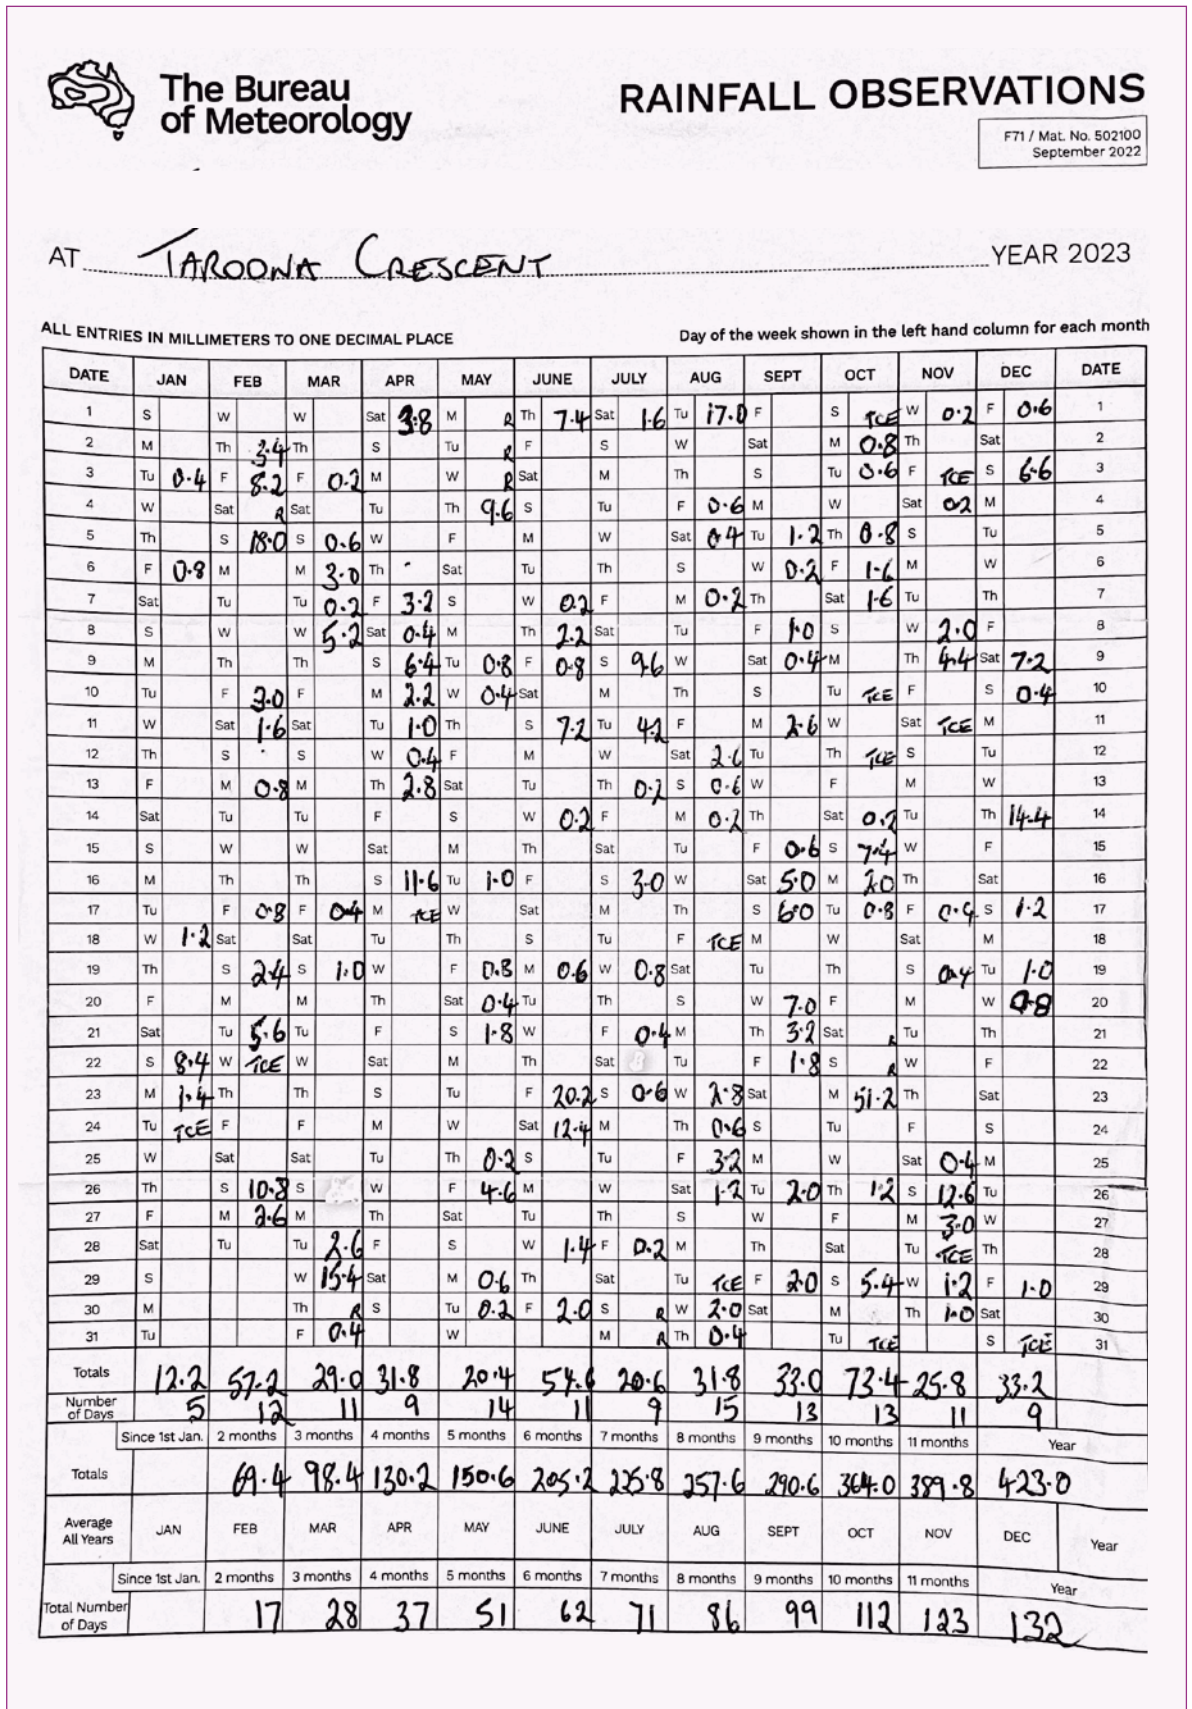 The Bureau
of Meteorology
RAINFALL OBSERVATIONS
F71 / Mat. No. 502100
September 2022
AT TAROONA CRESCENT YEAR 2023
ALL ENTRIES IN MILLIMETERS TO ONE DECIMAL PLACE Day of the week shown in the left hand column for each month
DATE JAN FEB MAR APR MAY JUNE JULY AUG SEPT OCT NOV DEC DATE
1 S W W Sat 3.8 M R Th 7.4 Sat 1.6 Tu 17.0 F S TCE W 0.2 F 0.6 1
2 M Th 3.4 Th S Tu R F S W Sat M 0.8 Th Sat 2
3 Tu 0.4 F 8.2 F 0.2 M W R Sat M Th S Tu 0.6 F TCE S 6.6 3
4 W Sat R Sat Tu Th 9.6 S Tu F 0.6 M W Sat 0.2 M 4
5 Th S 18.0 S 0.6 W F M W Sat 0.4 Tu 1.2 Th 0.8 S Tu 5
6 F 0.8 M M 3.0 Th Sat Tu Th S W 0.2 F 1.6 M W 6
7 Sat Tu Tu 0.2 F 3.2 S W 0.2 F M 0.2 Th Sat 1.6 Tu Th 7
8 S W W 5.2 Sat 0.4 M Th 2.2 Sat Tu F 1.0 S W 2.0 F 8
9 M Th Th S 6.4 Tu 0.8 F 0.8 S 9.6 W Sat 0.4 M Th 4.4 Sat 7.2 9
10 Tu F 3.0 F M 2.2 W 0.4 Sat M Th S Tu TCE F S 0.4 10
11 W Sat 1.6 Sat Tu 1.0 Th S 7.2 Tu 4.2 F M 2.6 W Sat TCE M 11
12 Th S S W 0.4 F M W Sat 2.6 Tu Th TCE S Tu 12
13 F M 0.8 M Th 2.8 Sat Tu Th 0.2 S 0.6 W F M W 13
14 Sat Tu Tu F S W 0.2 F M 0.2 Th Sat 0.2 Tu Th 14.4 14
15 S W W Sat M Th Sat Tu F 0.6 S 7.4 W F 15
16 M Th Th S 11.6 Tu 1.0 F S 3.0 W Sat 5.0 M 2.0 Th Sat 16
17 Tu F 0.8 F 0.4 M TCE W Sat M Th S 6.0 Tu 0.8 F 0.4 S 1.2 17
18 W 1.2 Sat Sat Tu Th S Tu F TCE M W Sat M 18
19 Th S 2.4 S 1.0 W F 0.8 M 0.6 W 0.8 Sat Tu Th S 0.4 Tu 1.0 19
20 F M M Th Sat 0.4 Tu Th S W 7.0 F M W 0.8 20
21 Sat Tu 5.6 Tu F S 1.8 W F 0.4 M Th 3.2 Sat R Tu Th 21
22 S 8.4 W TCE W Sat M Th Sat Tu F 1.8 S R W F 22
23 M 1.4 Th Th S Tu F 20.2 S 0.6 W 2.8 Sat M 51.2 Th Sat 23
24 Tu TCE F F M W Sat 12.4 M Th 0.6 S Tu F S 24
25 W Sat Sat Tu Th 0.2 S Tu F 3.2 M W Sat 0.4 M 25
26 Th S 10.8 S W F 4.6 M W Sat 1.2 Tu 2.0 Th 1.2 S 12.6 Tu 26
27 F M 2.6 M Th Sat Tu Th S W F M 3.0 W 27
28 Sat Tu Tu 2.6 F S W 1.4 F 0.2 M Th Sat Tu TCE Th 28
29 S W 15.4 Sat M 0.6 Th Sat Tu TCE F 2.0 S 5.4 W 1.2 F 1.0 29
30 M Th R S Tu 0.2 F 2.0 S R W 2.0 Sat M Th 1.0 Sat 30
31 Tu F 0.4 W M R Th 0.4 Tu TCE S TCE 31
Totals 12.2 57.2 29.0 31.8 20.4 54.6 20.6 31.8 33.0 73.4 25.8 33.2
Number of Days 5 12 11 9 14 11 9 15 13 13 11 9
Since 1st Jan. 2 months 3 months 4 months 5 months 6 months 7 months 8 months 9 months 10 months 11 months Year
Totals 69.4 98.4 130.2 150.6 205.2 225.8 257.6 290.6 364.0 389.8 423.0
Average All Years JAN FEB MAR APR MAY JUNE JULY AUG SEPT OCT NOV DEC Year
Since 1st Jan. 2 months 3 months 4 months 5 months 6 months 7 months 8 months 9 months 10 months 11 months Year
Total Number of Days 17 28 37 51 62 71 86 99 112 123 132